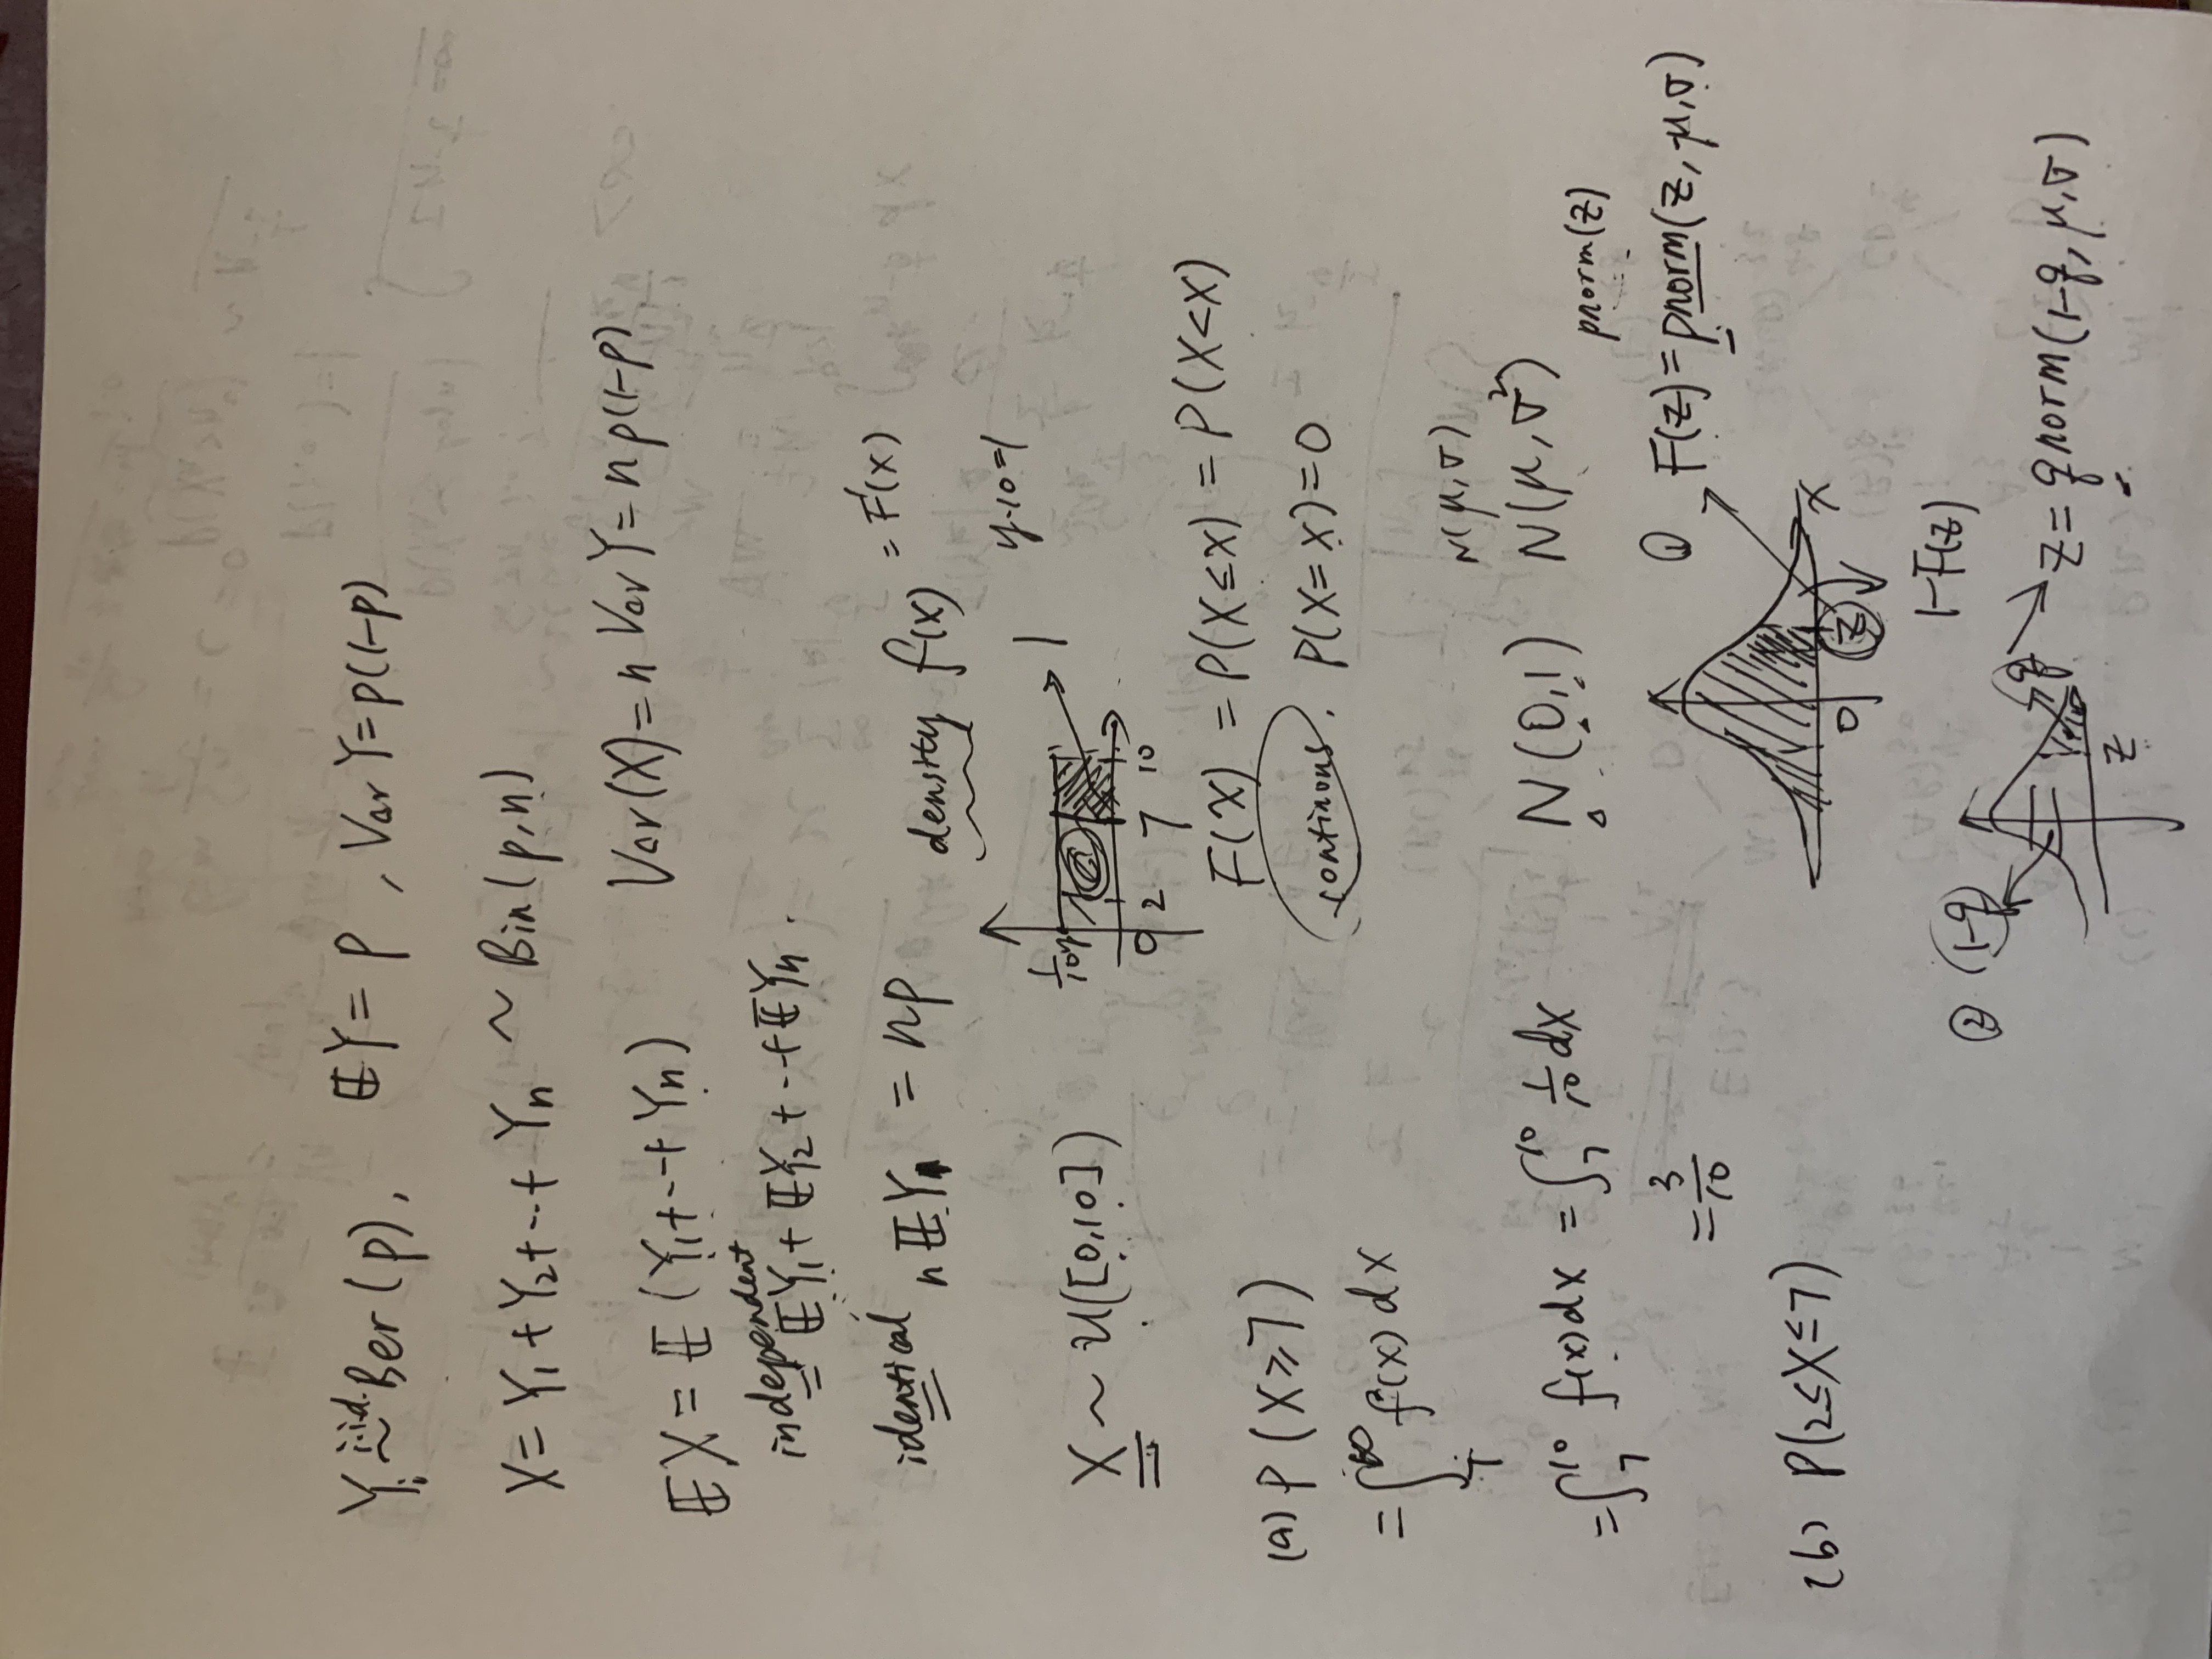 Yᵢ i.i.d. ~ Ber(p), 𝔼Y = p, Var Y = p(1-p)
X = Y₁ + Y₂ + ··· + Yₙ ~ Bin(p,n)
𝔼X = 𝔼(Y₁ + ··· + Yₙ) Var(X) = n Var Y = np(1-p)
independent
= 𝔼Y₁ + 𝔼Y₂ + ··· + 𝔼Yₙ.
idential n𝔼Y = np density f(x) = F'(x)
y·10=1
1
X ~ U([0,10])
1/10 y
0 2 7 10
(a) P(X≥7) F(x) = P(X≤x) = P(X<x)
= ∫₇^∞ f(x)dx continous, P(X=x)=0
N(μ,σ)
= ∫₇¹⁰ f(x)dx = ∫₇¹⁰ 1/10 dx N(0,1) N(μ,σ²)
= 3/10
pnorm(z)
① F(z) = pnorm(z,μ,σ)
0 z x
(b) P(2≤X≤7)
1-F(z)
② 1-q q z = qnorm(1-q,μ,σ)
z